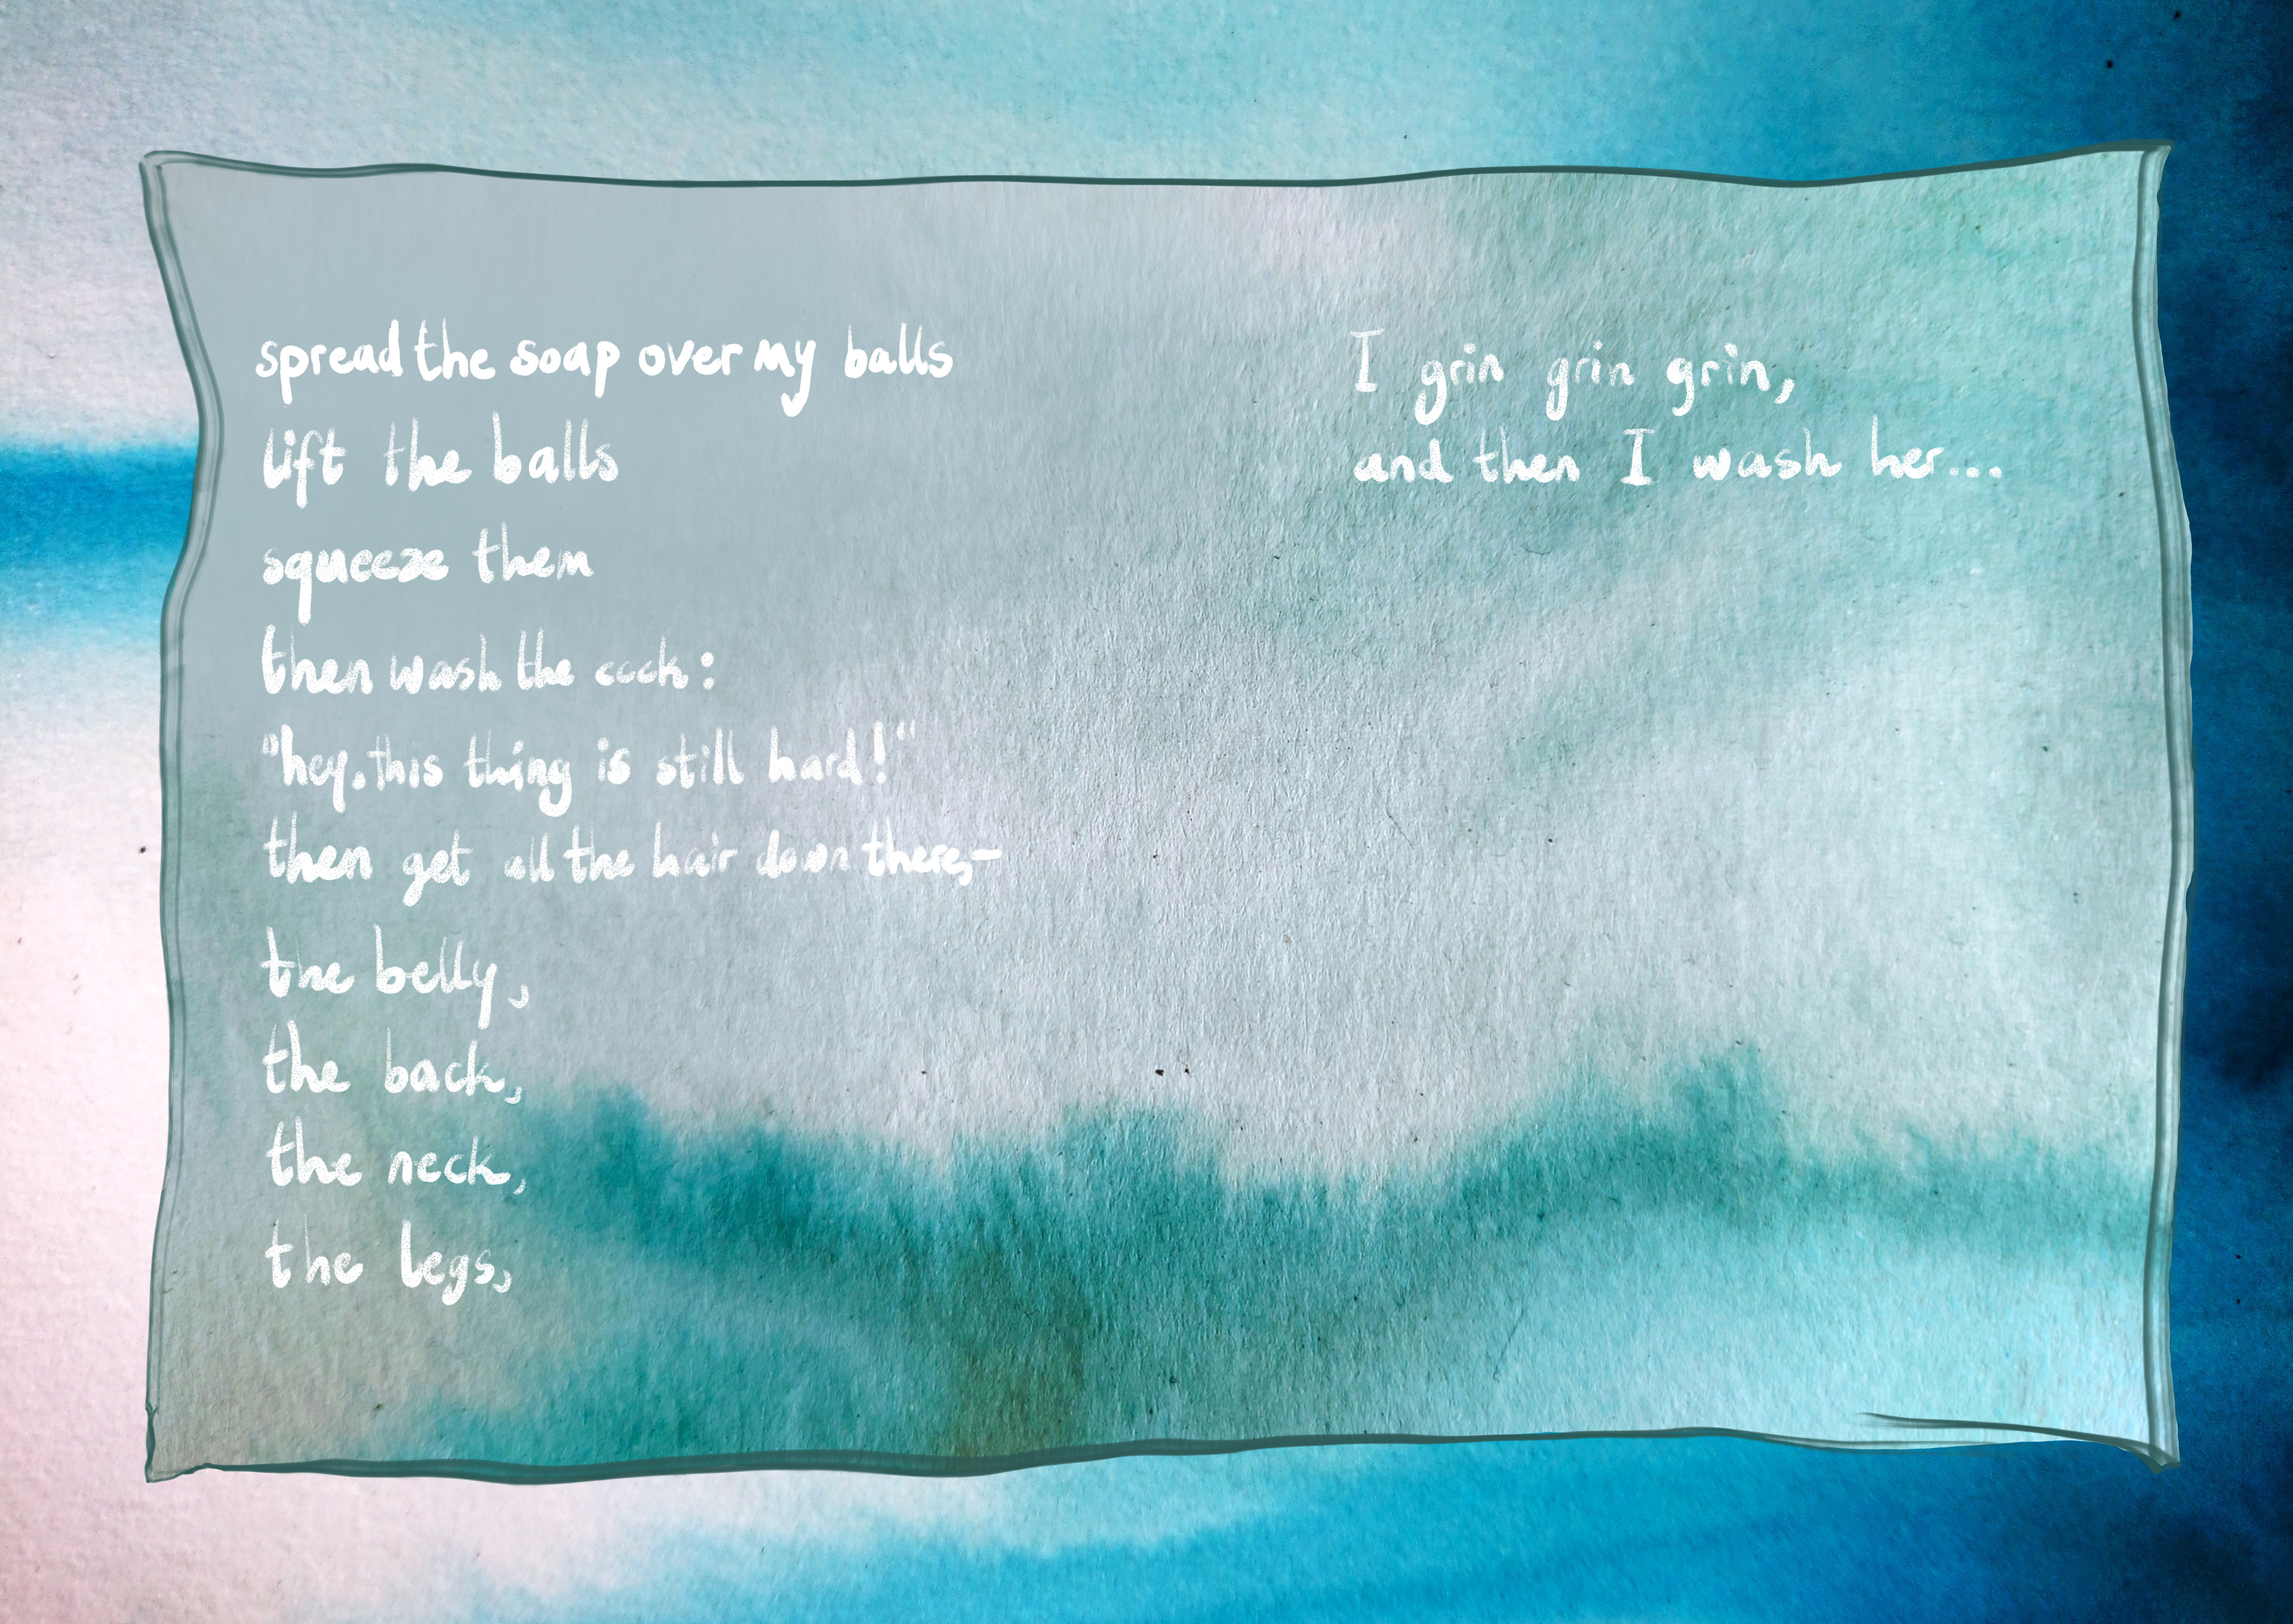 spread the soap over my balls
lift the balls
squeeze them
then wash the cock:
"hey, this thing is still hard!"
then get all the hair down there,-
the belly,
the back,
the neck,
the legs,
I grin grin grin,
and then I wash her...